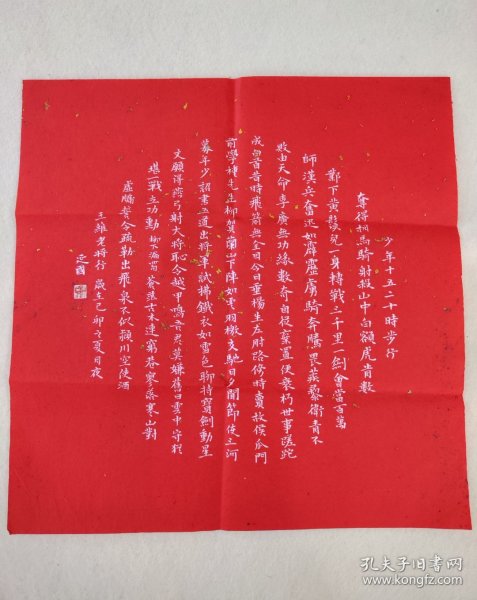 少年十五二十時步行
奪得胡馬騎射殺山中白額虎肯數
鄴下黃鬚兒一身轉戰三千里一劍曾當百萬
師漢兵奮迅如霹靂虜騎奔騰畏蒺藜衛青不
敗由天命李廣無功緣數奇自從棄置便衰朽世事蹉跎
成白首昔時飛箭無全目今日垂楊生左肘路傍時賣故侯瓜門
前學種先生柳賀蘭山下陣如雲羽檄交馳日夕聞節使三河
募年少詔書五道出將軍試拂鐵衣如雪色聊持寶劍動星
文願得燕弓射大將恥令越甲鳴吾君莫嫌舊日雲中守猶
堪一戰立功勳 蒼茫古木連窮巷寥落寒山對
虛牖誓令疏勒出飛泉不似潁川空使酒
王維老將行 歲在己卯之夏月夜
孔夫子旧书网
www.kongfz.com